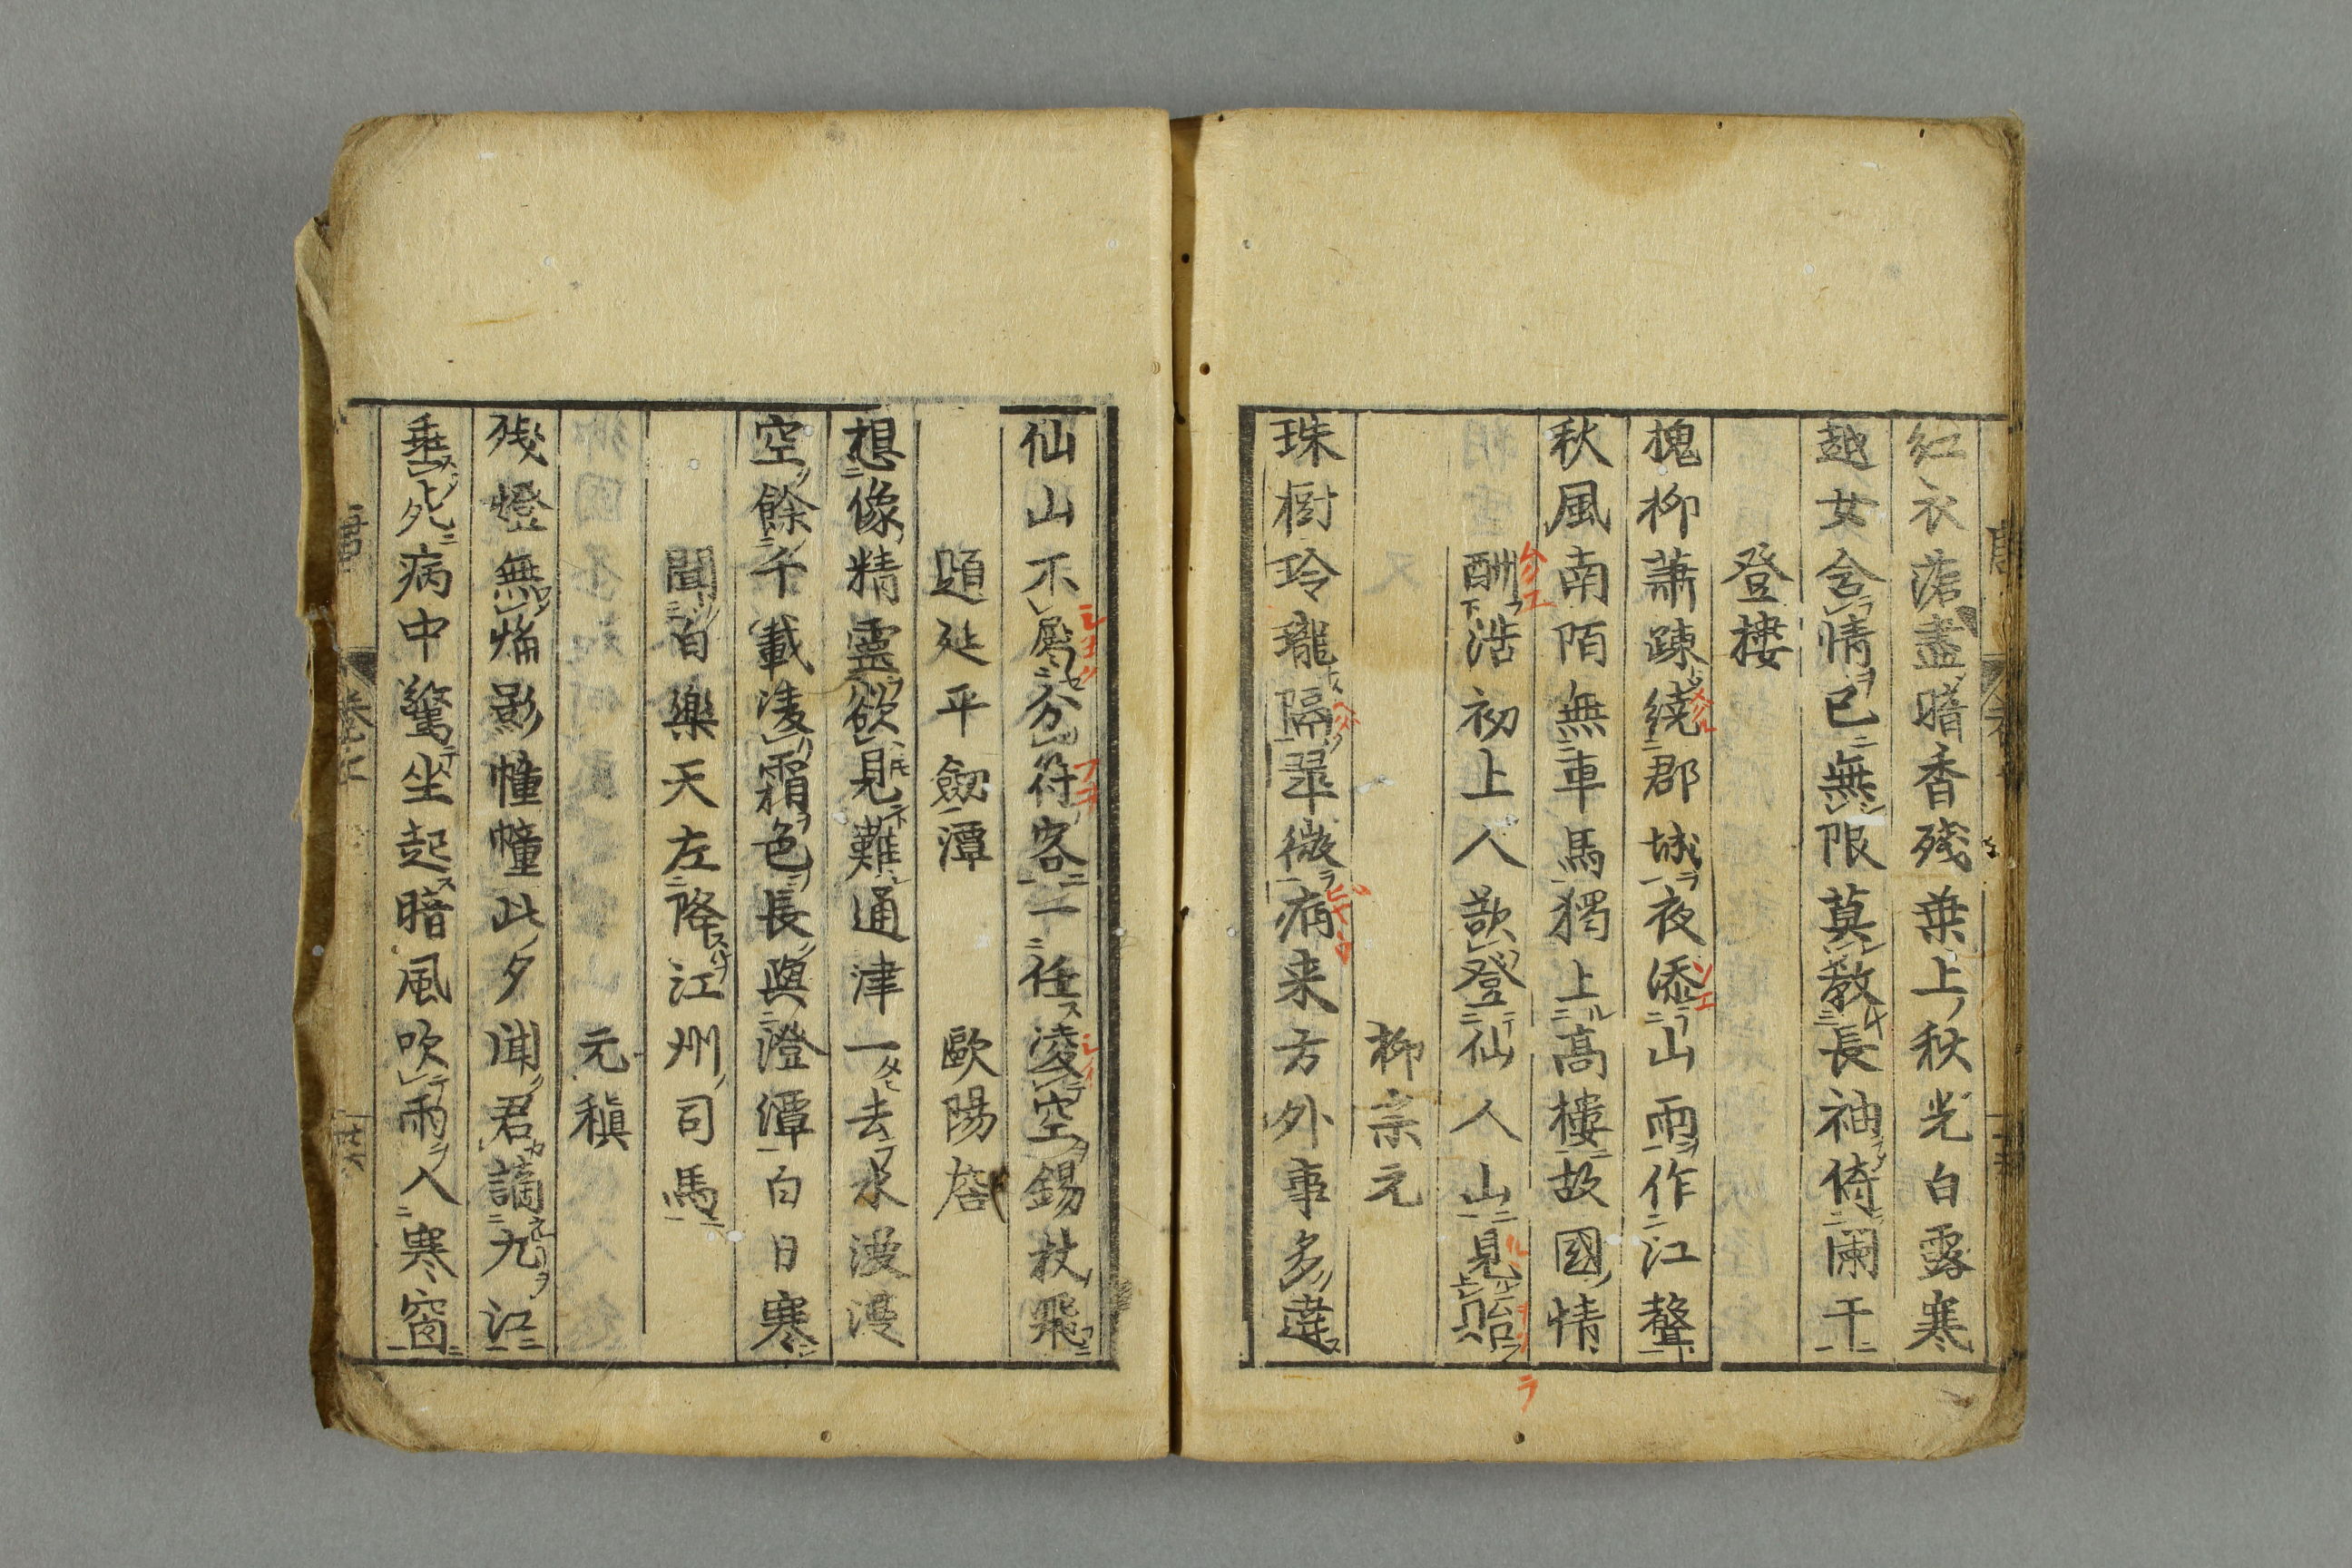 紅衣落盡暗香殘葉上秋光白露寒
越女含情已無限莫教長袖倚闌干
登樓
槐柳蕭疎繞郡城夜添山雨作江聲
秋風南陌無車馬獨上高樓故國情
酬浩初上人欲登仙人山見貽
柳宗元
珠樹玲瓏隔翠微病来方外事多違
仙山不屬分符客一任凌空錫杖飛
題延平劒潭　歐陽詹
想像精靈欲見難通津一去水漫漫
空餘千載凌霜色長與澄潭白日寒
聞白樂天左降江州司馬
元稹
殘燈無焔影幢幢此夕聞君謫九江
垂死病中驚坐起暗風吹雨入寒窗